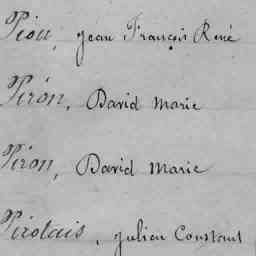 Piou, Jean François René
Piron, David Marie
Piron, David Marie
Pirotais, Julien Constant